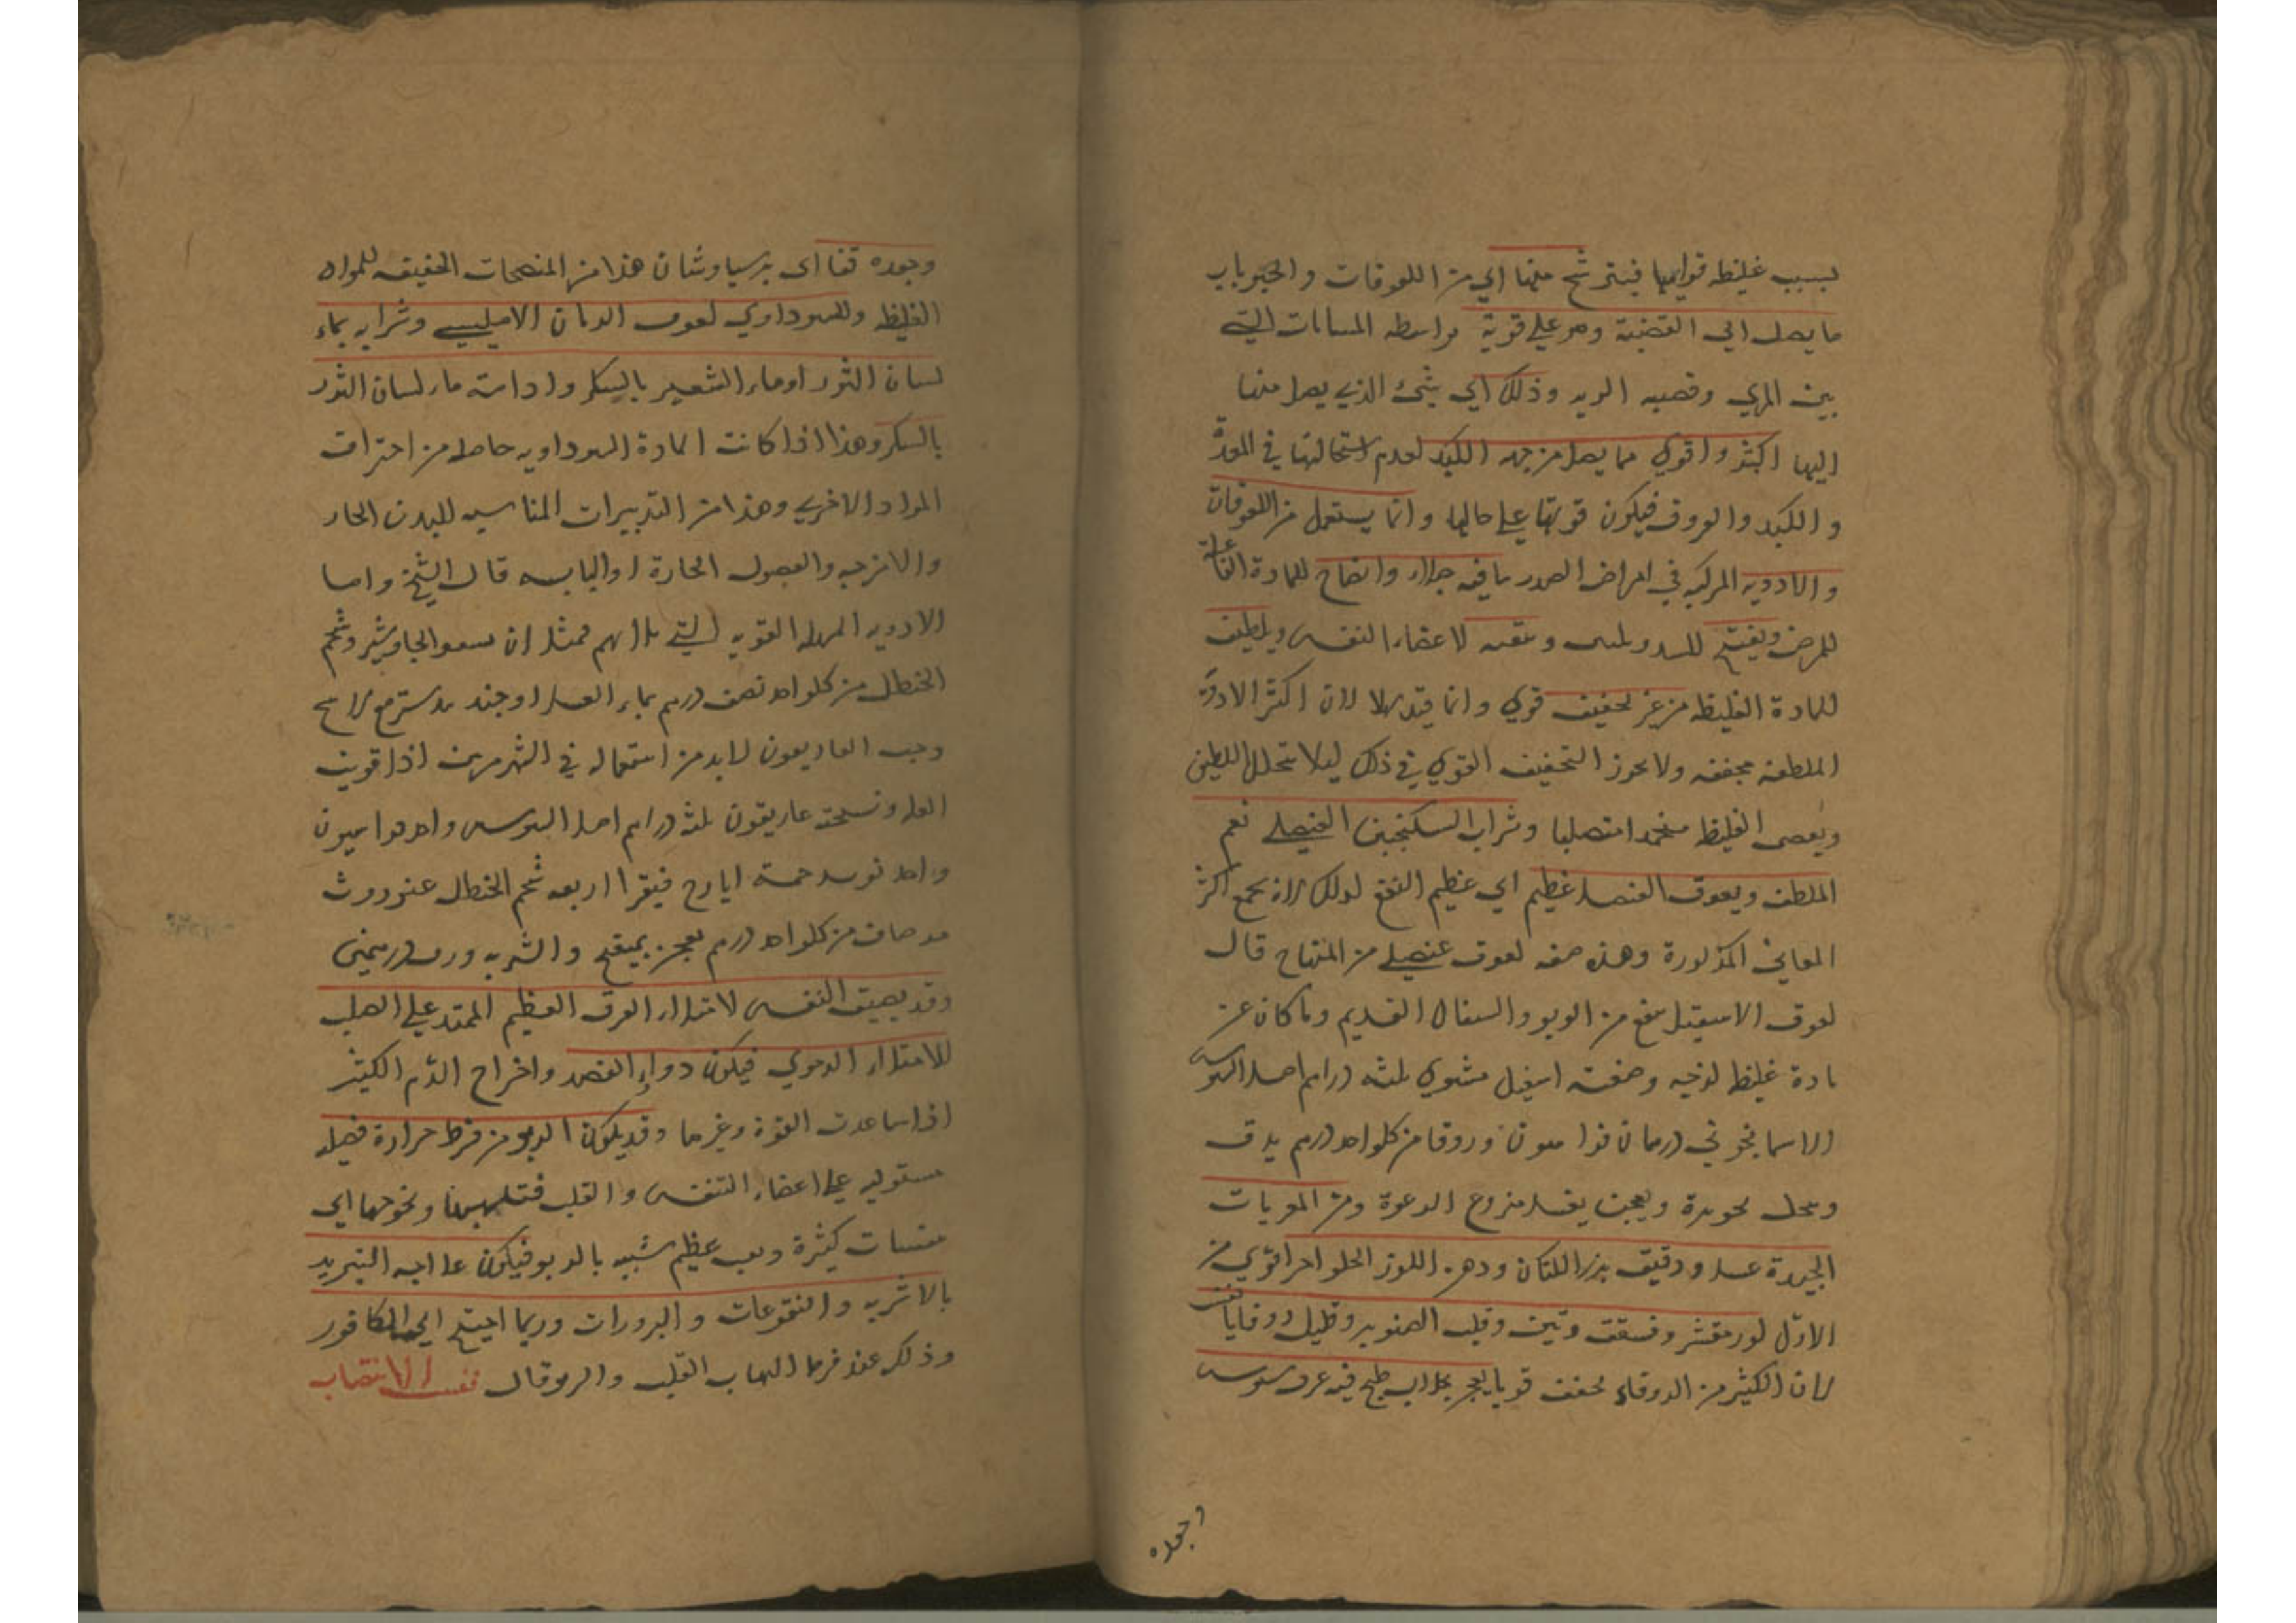 لسبب غليظه قوامها فيترشح منها اي من اللعوقات والحبوبات
ما يصل الي القصبة وهو علي قوية بواسطه المسامات التي
بين المري وقصبه الريه وذلك اي شئ الذي يصل منها
اليها اكثر واقوي مما يصل من جهه الكبد لعدم استحالتها في المعدة
والكبد والعروق فيكون قوتها علي حالها وانما يستعمل من اللعوقات
والادويه المركبه في امراض الصدر ما فيه جلاء وانضاج للمادة
للمرض ويفتح للسدد و لاعضاء النفس ويلطف
للمادة الغليظه من غير تجفيف قوي وانما قيد بهذا لان اكثر الادوية
الملطفه مجففه ولا يجوز التجفيف القوي في ذلك ليلا يتحلل اللطيف
ويعصي الغليظ وشراب السكنجبين العنصلي نعم
الملطف ولعوق العنصل عظيم اي عظيم النفع لذلك لانه يجمع اكثر
المعاني المذكورة وهذه صفه لعوق عنصلي من المنهاج قال
لعوق الاسقيل ينفع من الربو والسعال القديم وما كان عن
مادة غليظ لزجه وصفته اسقيل مشوي ثلثه دراهم اصل السوس
الاسمانجوني درهمان وزوفا من كل واحد درهم يدق
وينخل بحريرة ويعجن بعسل منزوع الرغوة ومن المريات
الجيدة عسل ودقيق بذر الكتان ودهن اللوز الحلو اخر اقوي من
الاول لوز مقشر وفستق وتين وقلب الصنوبر وقليل زوفا
لان الكثير من الزوفاء يجفف قويا يعجن بجلاب طبخ فيه عرق سوس
وجعده
وجعده قنا اي برسياوشان هذا من المنضجات الخفيفه للمواد
الغليظه وللسوداوي لعوق الرمان الامليسي وشرابه بماء
لسان الثور او ماء الشعير بالسكر وادامته ماء لسان الثور
بالسكر وهذا اذا كانت المادة السوداويه حاصله من احتراق
المواد الاخري وهذا من التدبيرات المناسبه للبدن الحار
والامزجه والفصول الحارة او اليابسه قال الشيخ واما
الادويه المسهله القويه التي فمثل ان الجاوشير وشحم
الحنظل من كل واحد نصف درهم بماء العسل او جندبيدستر مع
وحب الغاريقون لابد من استعماله في الشهر مرتين اذا قويت
العله ونسخته غاريقون ثلثه دراهم اصل السوس واحد
واحد تربد خمسة ايارج فيقرا اربعه شحم الحنظل عنزروت
من كل واحد درهم يعجن بميفختج والشربه وزن درهمين
وقد يضيق النفس لامتلاء العرق العظيم الممتد علي الصلب
للامتلاء الدموي فيكون دواء الفصد واخراج الدم الكثير
اذا ساعدت القوة وغيرها وقد يكون الربو من فرط حرارة
مستوليه علي اعضاء التنفس والقلب فتلهبها ونحوجها الي
كثيرة وتعب عظيم شبيه بالربو فيكون علاجه التبريد
بالاشربه والنقوعات والبزورات وربما احتيج الي الكافور
وذلك عند فرط التهاب القلب والربو قال نفس الانتصاب